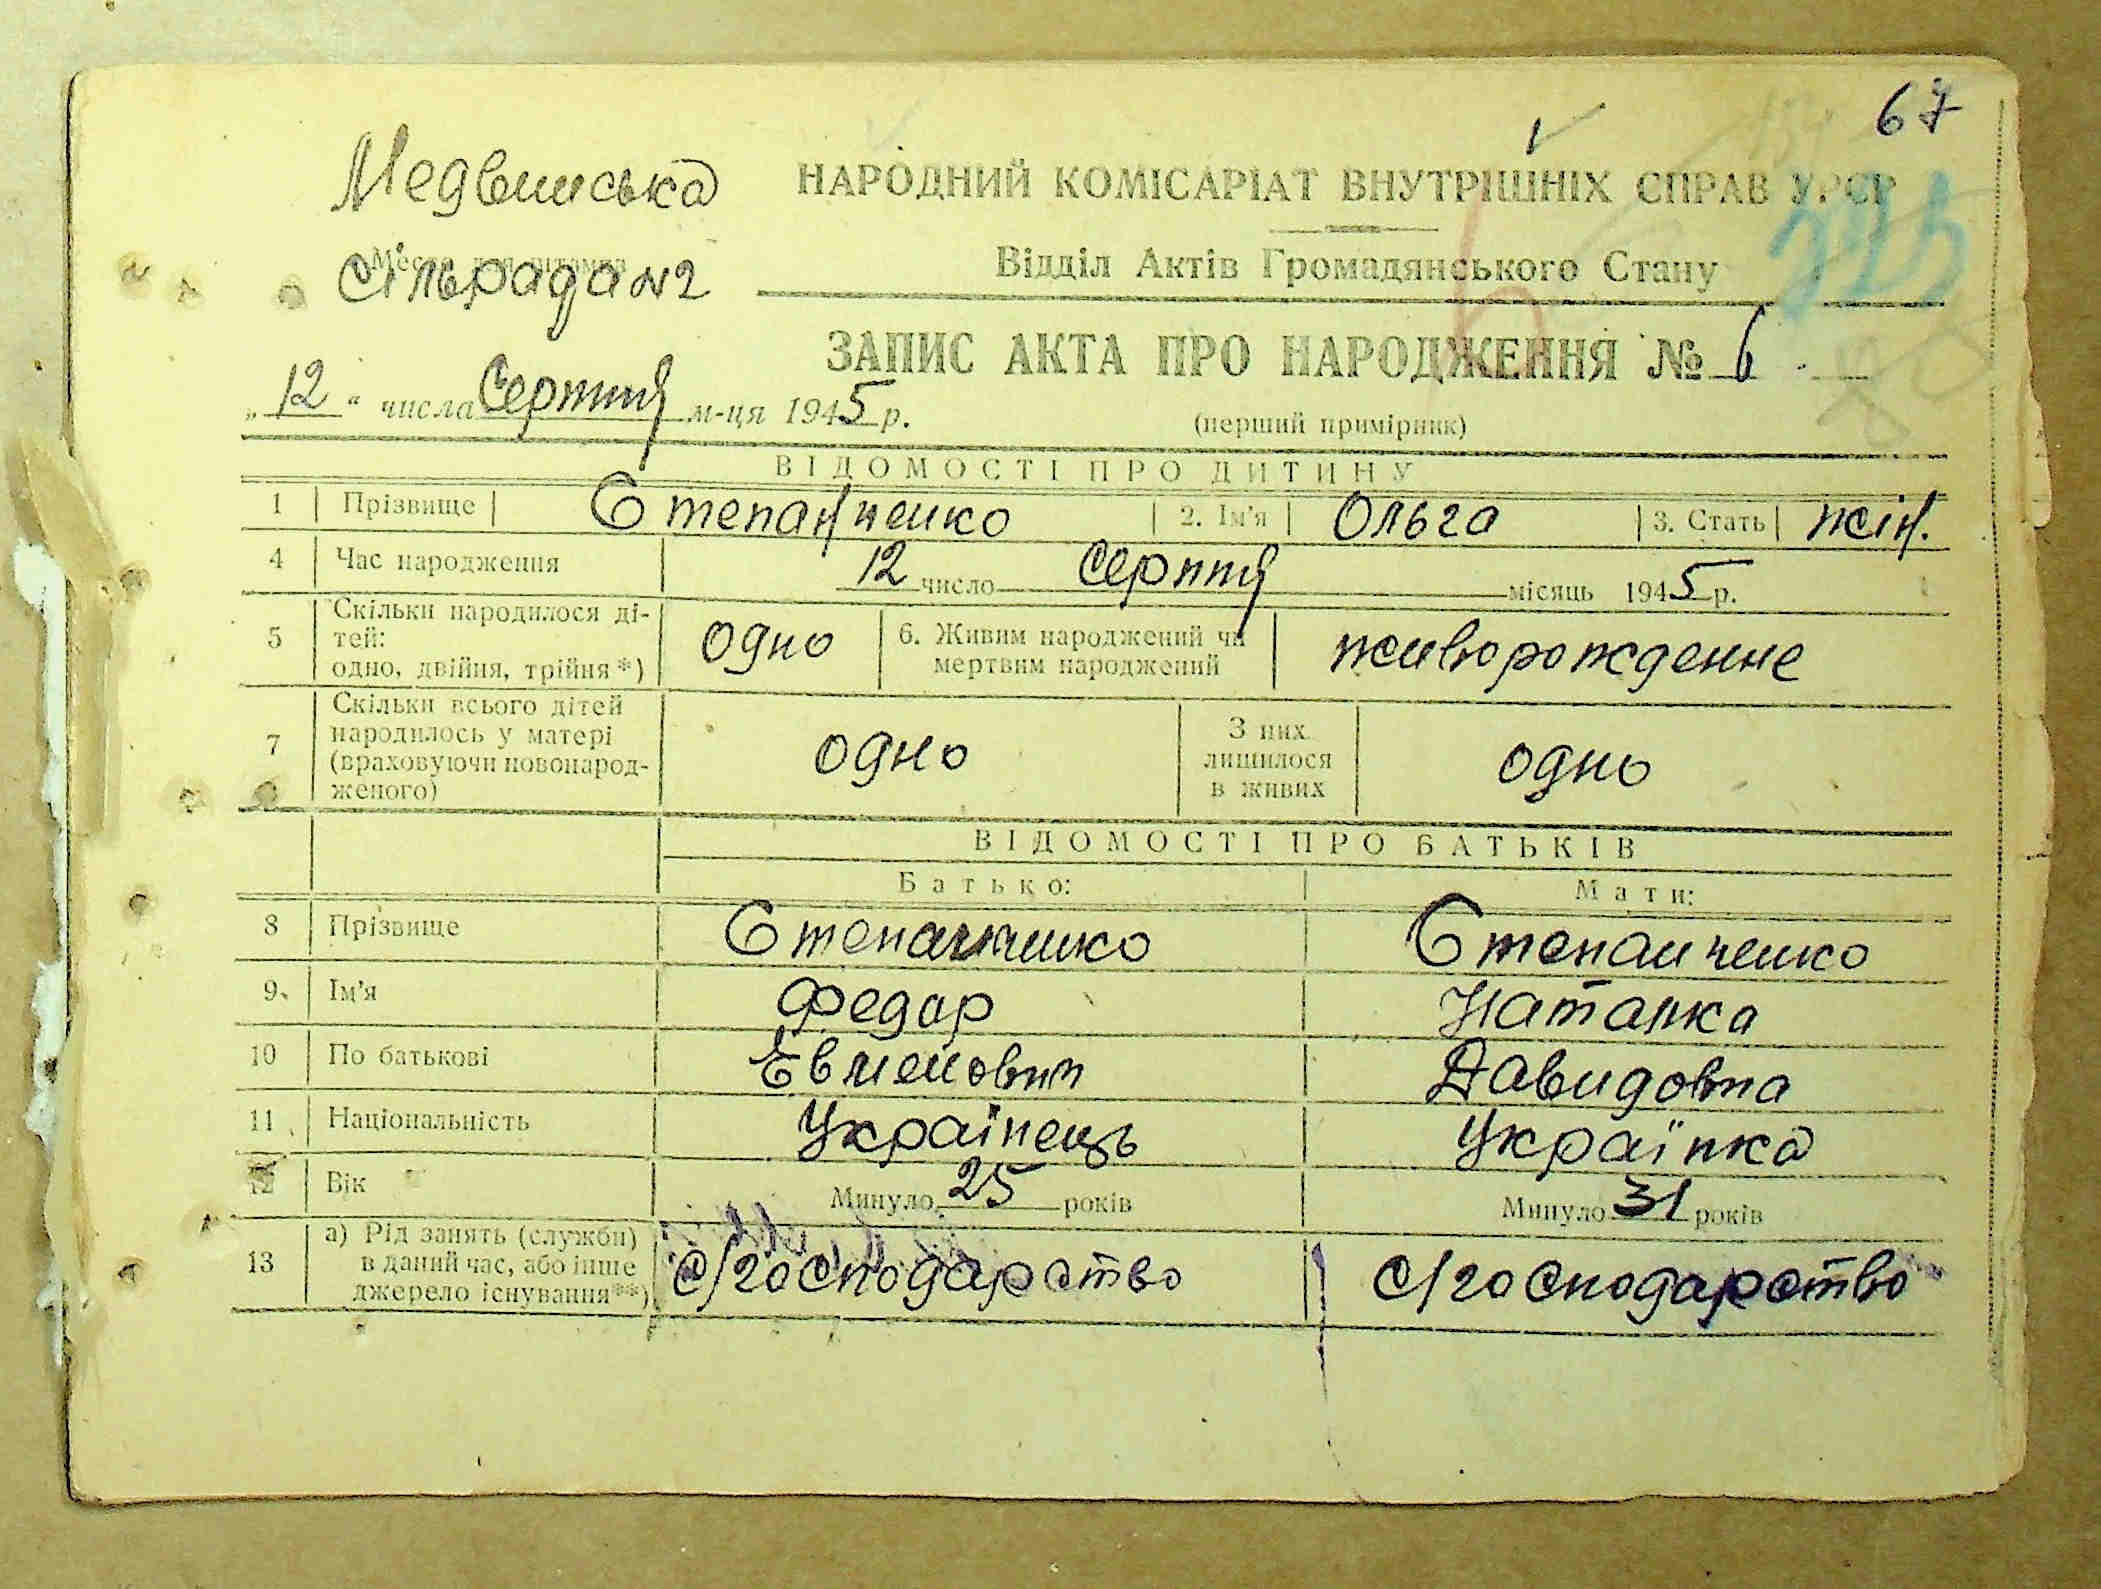 67
Медвинська
НАРОДНИЙ КОМІСАРІАТ ВНУТРІШНІХ СПРАВ УРСР
сільрада №2
Відділ Актів Громадянського Стану
ЗАПИС АКТА ПРО НАРОДЖЕННЯ № 6
„12" числа Серпня м-ця 1945 р.
(перший примірник)
ВІДОМОСТІ ПРО ДИТИНУ
1 Прізвище Степанченко 2. Ім'я Ольга 3. Стать жін.
4 Час народження 12 число Серпня місяць 1945 р.
5 Скільки народилося ді-
тей:
одно, двійня, трійня*) одно 6. Живим народжений чи
мертвим народжений живорожденне
7 Скільки всього дітей
народилось у матері
(враховуючи новонарод-
женого) одно З них
лишилося
в живих одно
ВІДОМОСТІ ПРО БАТЬКІВ
Батько: Мати:
8 Прізвище Степанченко Степанченко
9 Ім'я Федор Наталка
10 По батькові Евменович Давидовна
11 Національність Українець Українка
12 Вік Минуло 25 років Минуло 31 років
13 а) Рід занять (служби)
в даний час, або інше
джерело існування**) с/господарство с/господарство